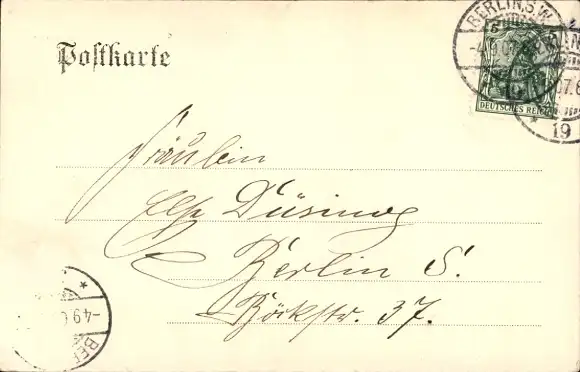 Postkarte
BERLIN, S.W.
5
DEUTSCHES REICH
19
Fräulein
Else Düsing
Berlin S.
Böckstr. 37.
-4.9.0
BER